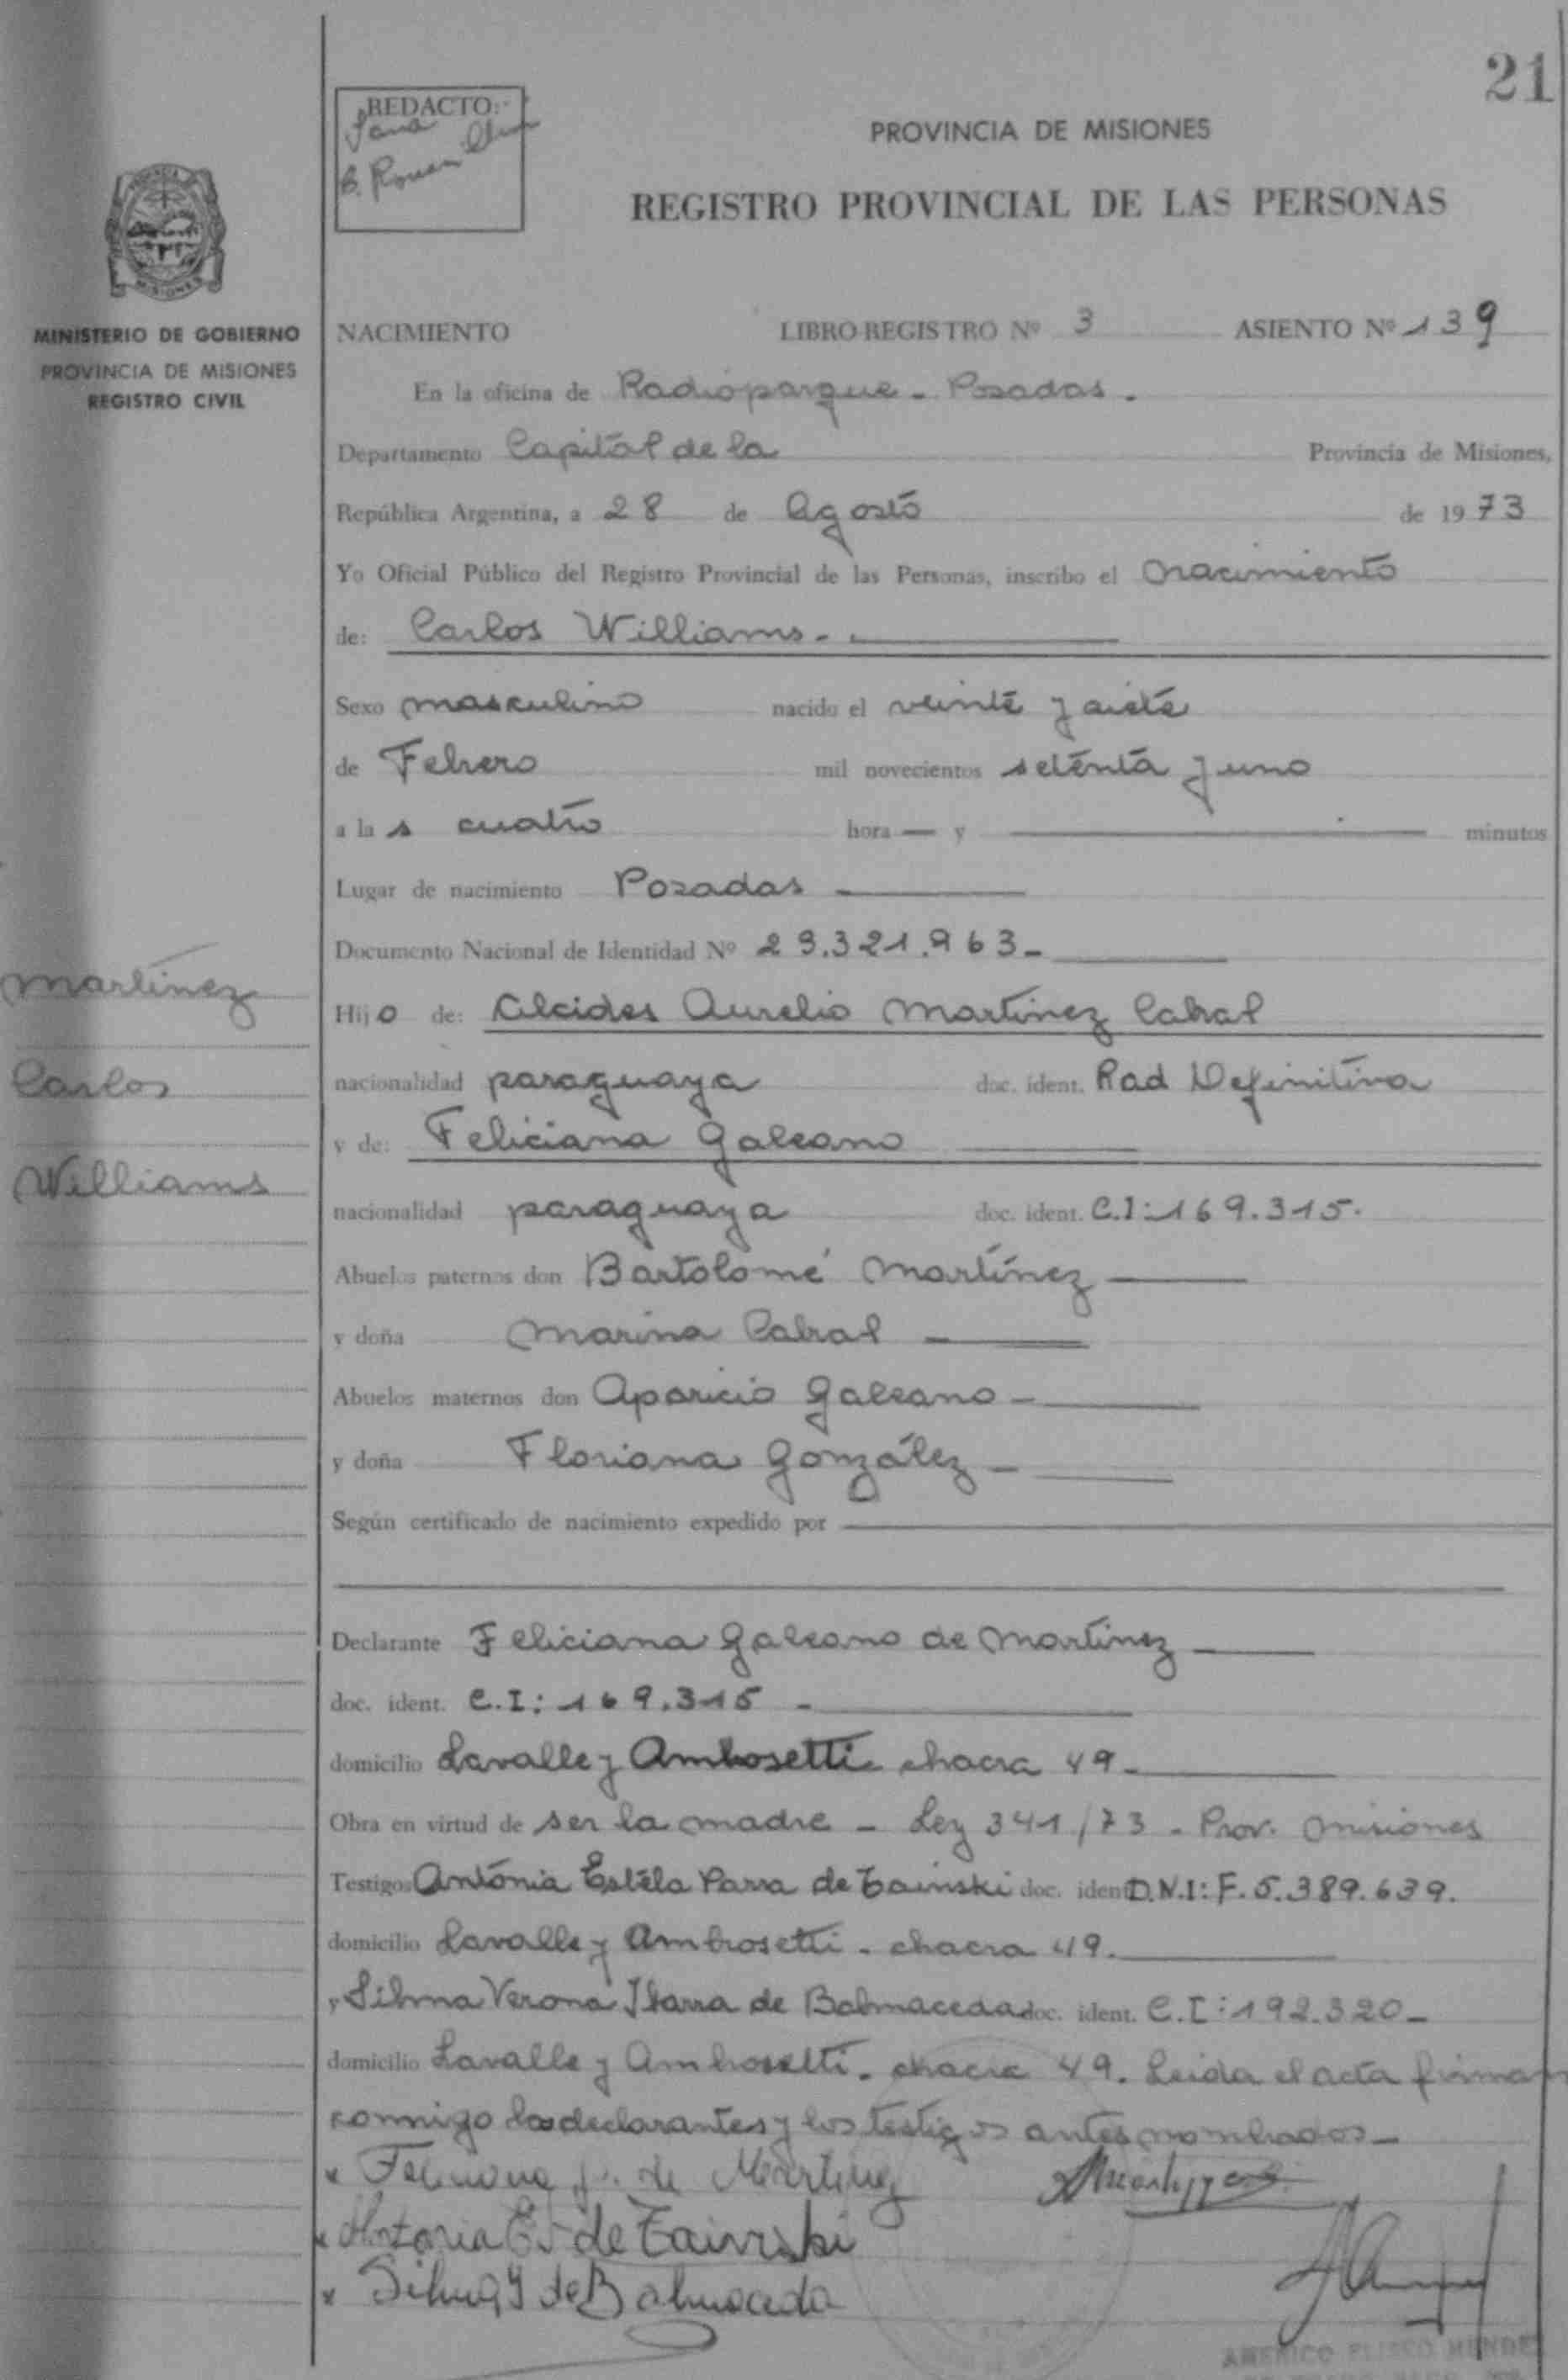 21
REDACTO:
PROVINCIA DE MISIONES
REGISTRO PROVINCIAL DE LAS PERSONAS
MISIONES
MINISTERIO DE GOBIERNO
PROVINCIA DE MISIONES
REGISTRO CIVIL
NACIMIENTO LIBRO REGISTRO Nº 3 ASIENTO Nº 139
En la oficina de Radioparque - Posadas.
Departamento Capital de la Provincia de Misiones,
República Argentina, a 28 de Agosto de 1973
Yo Oficial Público del Registro Provincial de las Personas, inscribo el nacimiento
de: Carlos Williams.-
Sexo masculino nacido el veinte y siete
de Febrero mil novecientos setenta y uno
a las cuatro hora — y — minutos
Lugar de nacimiento Posadas —
Documento Nacional de Identidad Nº 29.321.963-
martínez
Hijo de: Alcides Aurelio Martinez Cabral
Carlos
nacionalidad paraguaya doc. ident. Rad Definitiva
y de: Feliciana Galeano
Williams
nacionalidad paraguaya doc. ident. C.I:169.315.
Abuelos paternos don Bartolomé Martínez —
y doña Marina Cabral —
Abuelos maternos don Aparicio Galeano —
y doña Floriana González —
Según certificado de nacimiento expedido por —
Declarante Feliciana Galeano de Martinez —
doc. ident. C.I: 169.315 -
domicilio Lavalle y Ambosetti chacra 49-
Obra en virtud de ser la madre - Ley 341/73 - Prov. Misiones
Testigos Antónia Estéla Parra de Tainski doc. ident D.N.I: F. 5.389.639.
domicilio Lavalle y Ambrosetti - chacra 49.
y Silma Verona Ibarra de Balmaceda doc. ident. C.I:192.320-
domicilio Lavalle y Ambrosetti. chacra 49. Leida el acta firman
conmigo los declarantes y los testigos antes nombrados-
x Feliciana g. de Martinez
x Antonia E. de Tainski
x Silma Y de Balmaceda
AMERICO ELISEO MENDE